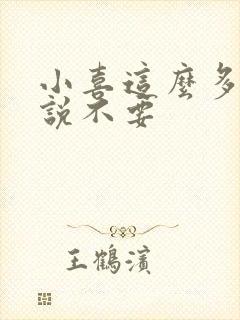 小喜這麼多
說不要
王鶴濱